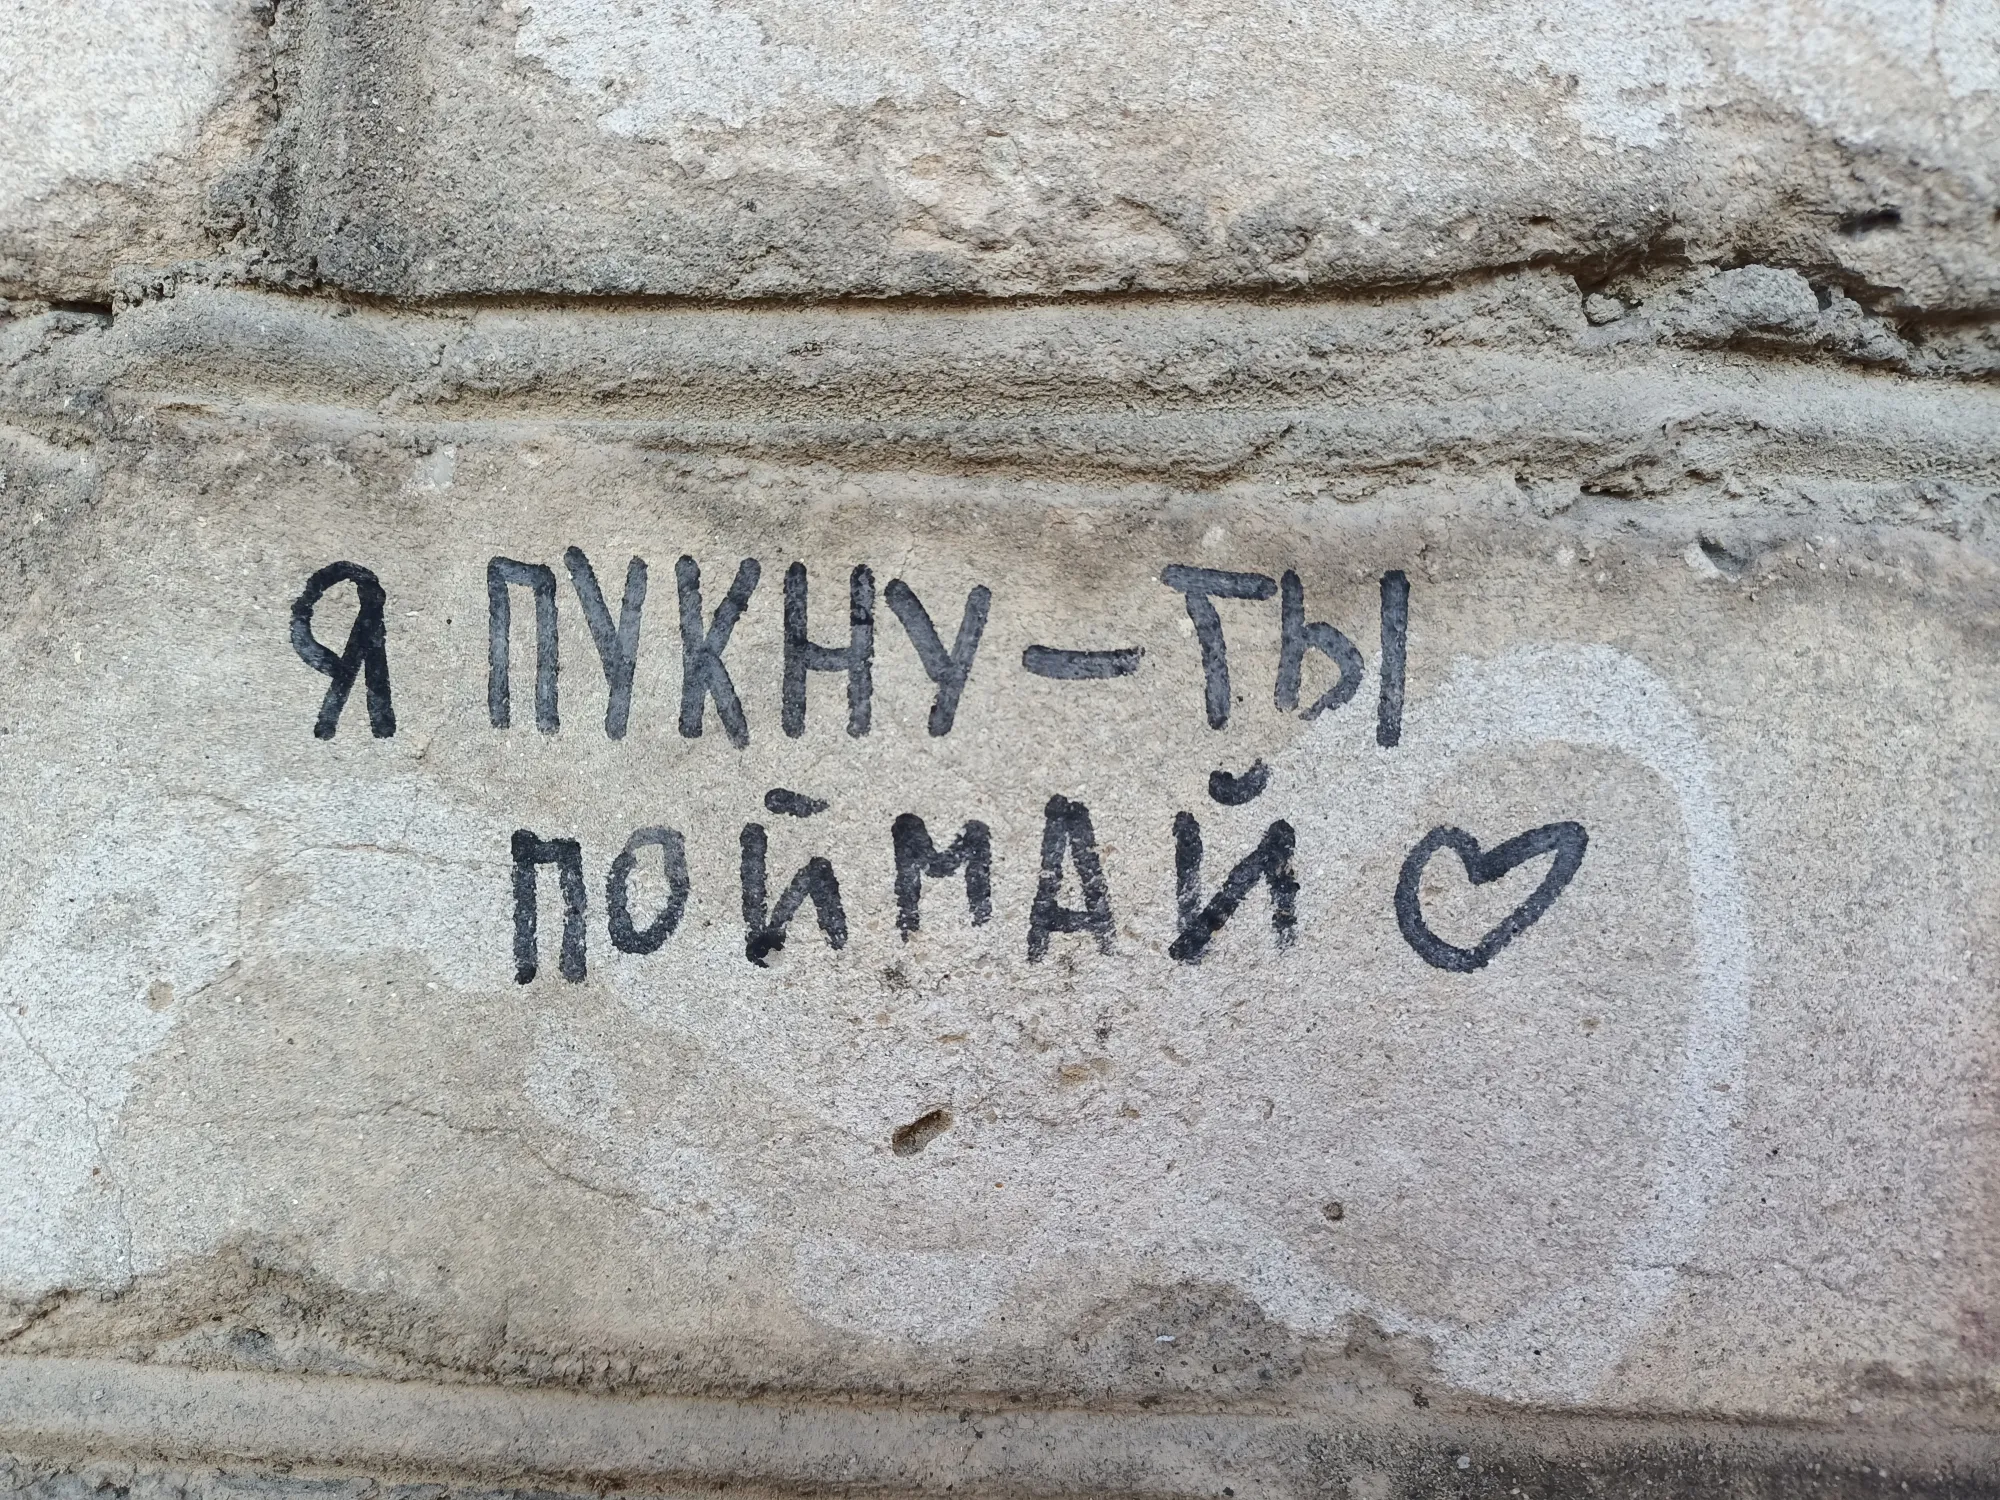 Я ПУКНУ-ТЫ
ПОЙМАЙ ♡